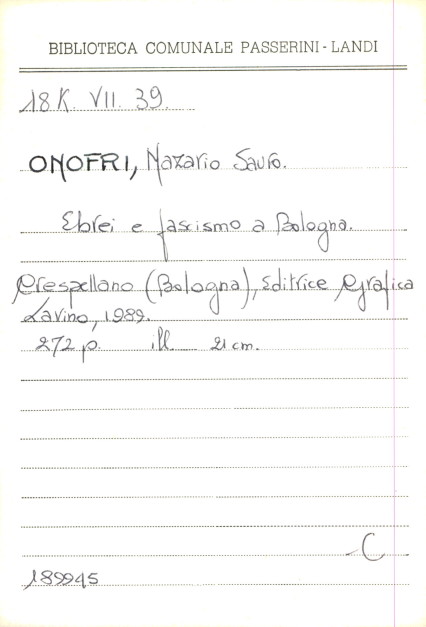 BIBLIOTECA COMUNALE PASSERINI - LANDI
18K. VII. 39.
ONOFRI, Nazario Sauro.
Ebrei e fascismo a Bologna.
Crespellano (Bologna), Editrice Grafica
Lavino, 1989.
272 p. ill 21 cm.
C
189945